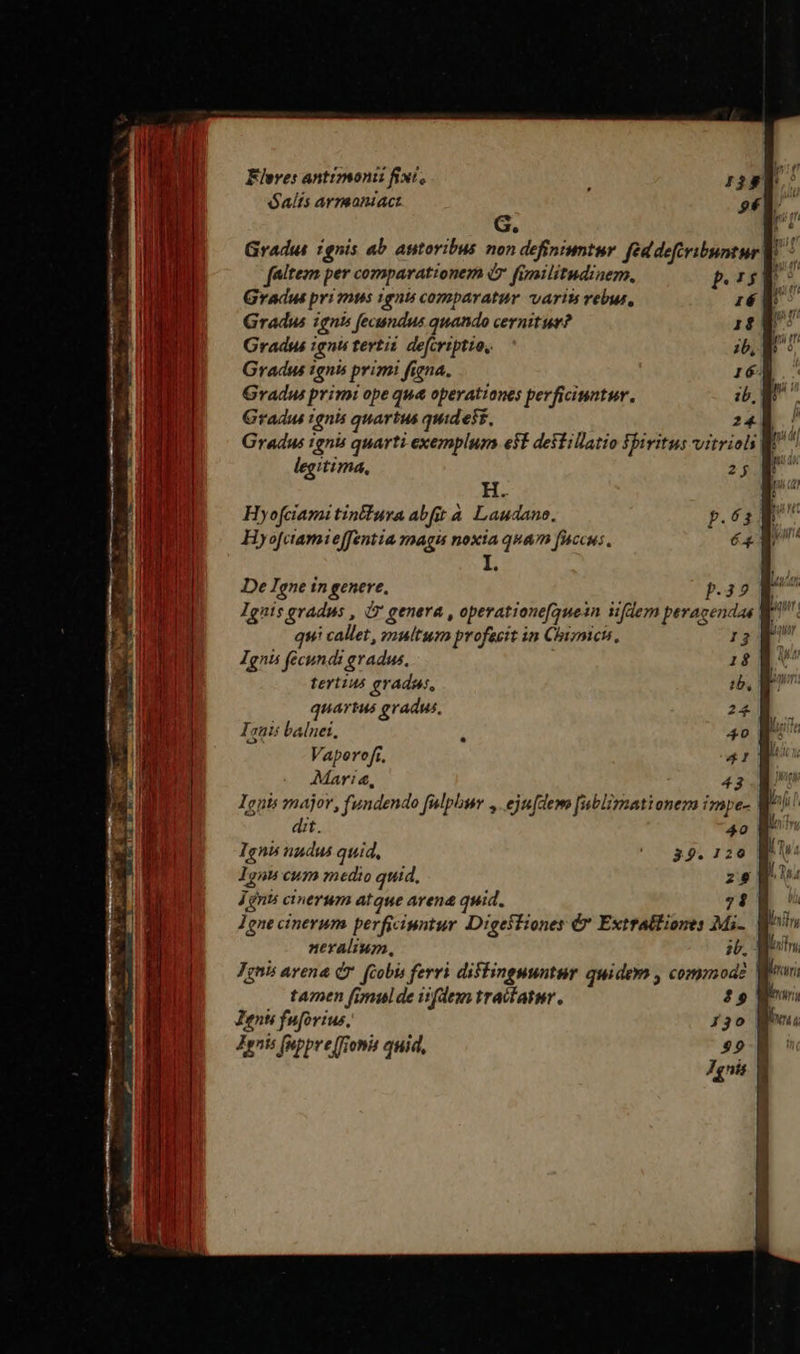 Flores antimonii fixi, 138
Salis armoniaci 96
G.
Gradus ignis ab autoribus non definiuntur sed describuntur
saltem per comparationem & similitudinem, p. 15
Gradus primus ignis comparatur variis rebus, 16
Gradus ignis secundus quando cernitur? 18
Gradus ignis tertii descriptio, ib,
Gradus ignis primi signa. 16
Gradus primi ope quæ operationes perficiuntur. ib.
Gradus ignis quartus quid est. 24
Gradus ignis quarti exemplum est destillatio spiritus vitrioli
legitima, 25
H.
Hyosciami tinctura absit à Laudano. p. 63
Hyosciami essentia magis noxia quam succus. 64
I.
De Igne in genere, p. 39
Ignis gradus, & genera, operationesque in iisdem peragendas
qui callet, multum profecit in Chimicis, 13
Ignis secundi gradus, 18
tertius gradus, ib,
quartus gradus, 24
Ignis balnei, 40
Vaporosi, 41
Mariæ, 43
Ignis major, fundendo sulphur, ejusdem sublimationem impe-
dit. 40
Ignis nudus quid, 39. 120
Ignis cum medio quid, 29
Ignis cinerum atque arenæ quid. 78
Igne cinerum perficiuntur Digestiones & Extractiones Mi-
neralium, ib,
Ignis arenæ & scobis ferri distinguuntur quidem, commodè
tamen simul de iisdem tractatur. 89
Ignis fusorius, 130
Ignis suppressionis quid, 99
Ignis